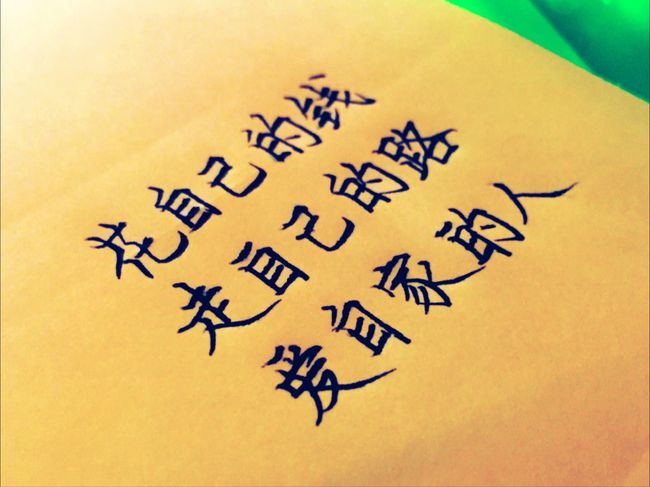 花自己的錢
走自己的路
愛自家的人